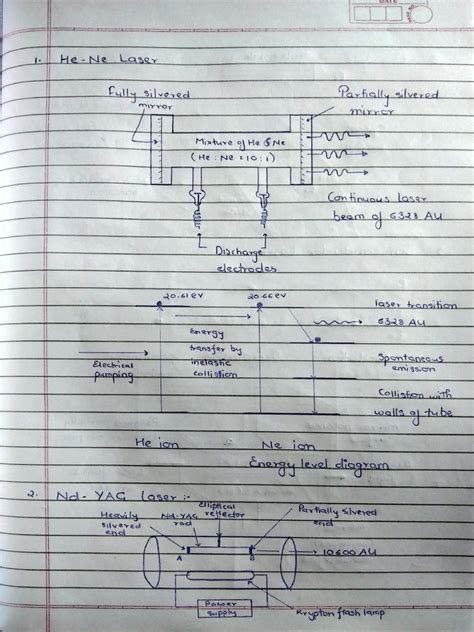 DATE
1. He-Ne Laser
Fully silvered
mirror
Partially silvered
mirror
Mixture of He & Ne
(He : Ne = 10 : 1)
Continuous laser
beam of 6328 AU
Discharge
electrodes
20.61 eV
20.66 eV
laser transition
6328 AU
Energy
transfer by
inelastic
collistion
Electrical
pumping
Spontaneous
emission
Collistion with
walls of tube
He ion
Ne ion
Energy level diagram
2. Nd-YAG laser :-
Heavily
silvered
end
Nd-YAG
rod
elliptical
reflector
Partially silvered
end
A
B
10600 AU
Power
supply
Krypton flash lamp